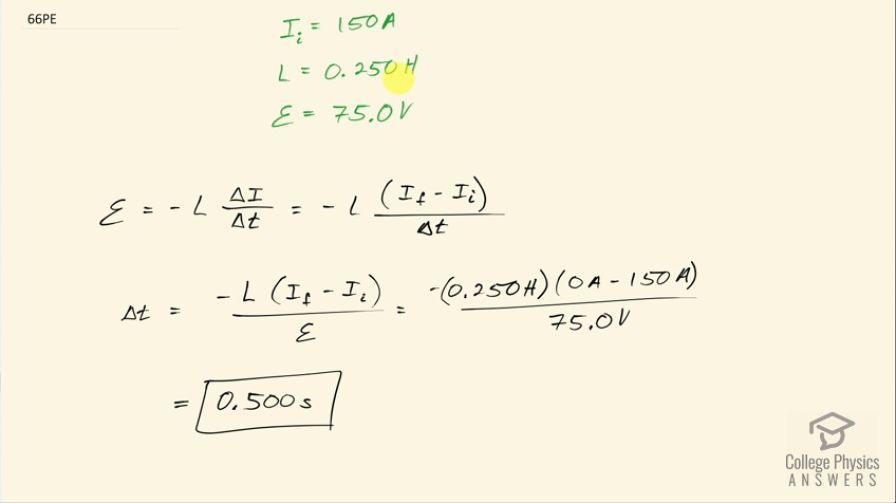 66PE
I_i = 150A
L = 0.250H
ℰ = 75.0V
ℰ = -L ΔI/Δt = -L (I_f - I_i)/Δt
Δt = -L (I_f - I_i)/ℰ = -(0.250H)(0A - 150A)/75.0V
= 0.500s
College Physics
ANSWERS